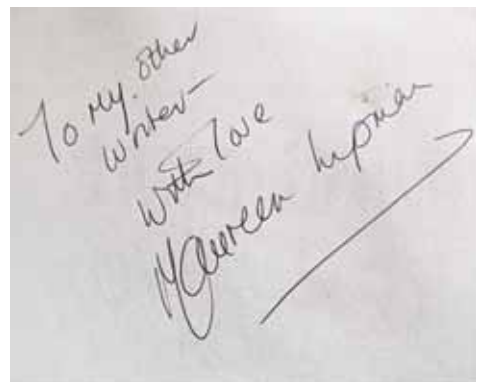 To my other
writer –
With love
Maureen Lipman